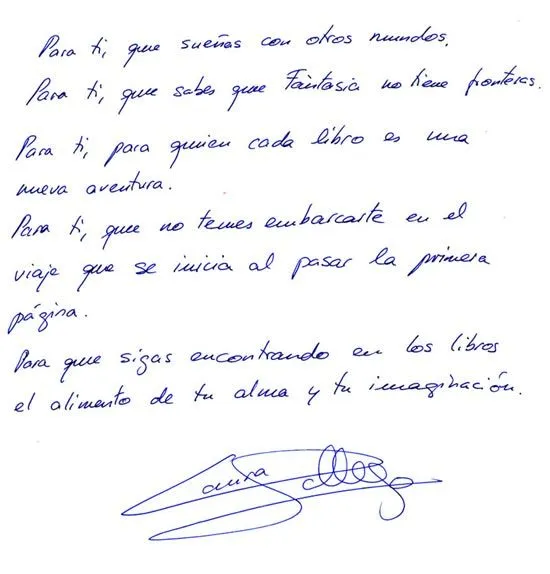 Para ti, que sueñas con otros mundos.
Para ti, que sabes que Fantasia no tiene fronteras.
Para ti, para quien cada libro es una
nueva aventura.
Para ti, que no temes embarcarte en el
viaje que se inicia al pasar la primera
página.
Para que sigas encontrando en los libros
el alimento de tu alma y tu imaginación.
Laura Gallego